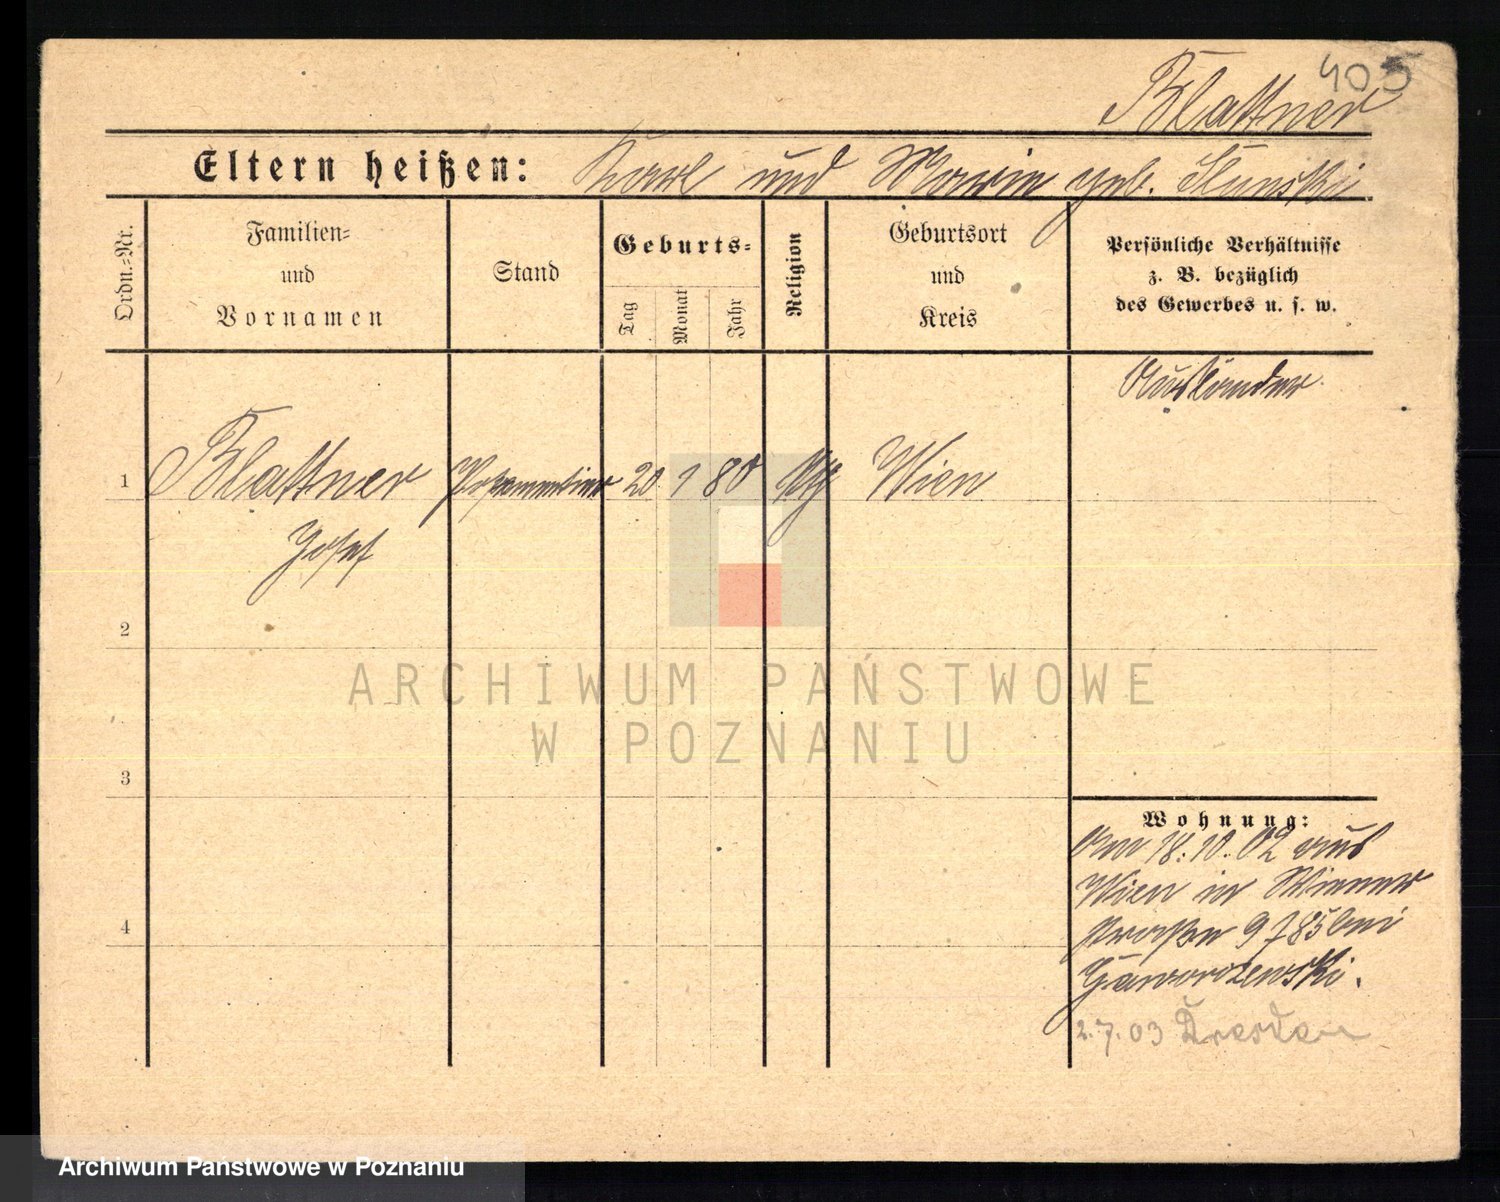 405
Blattner
Eltern heißen: Karl und Marie geb. Slunski.
Ordn.-Nr.
Familien-
und
Vornamen
Stand
Geburts-
Tag
Monat
Jahr
Religion
Geburtsort
und
Kreis
Persönliche Verhältnisse
z. B. bezüglich
des Gewerbes u. s. w.
Ausländer.
1 Blattner Posamentier 20. 1 80 Wien
Josef
2
3
4
Wohnung:
Am 18.10.02 aus
Wien in Wiener
straße 9 bei
Gaworzewski.
2.7.03 Dresden
ARCHIWUM PAŃSTWOWE
W POZNANIU
Archiwum Państwowe w Poznaniu